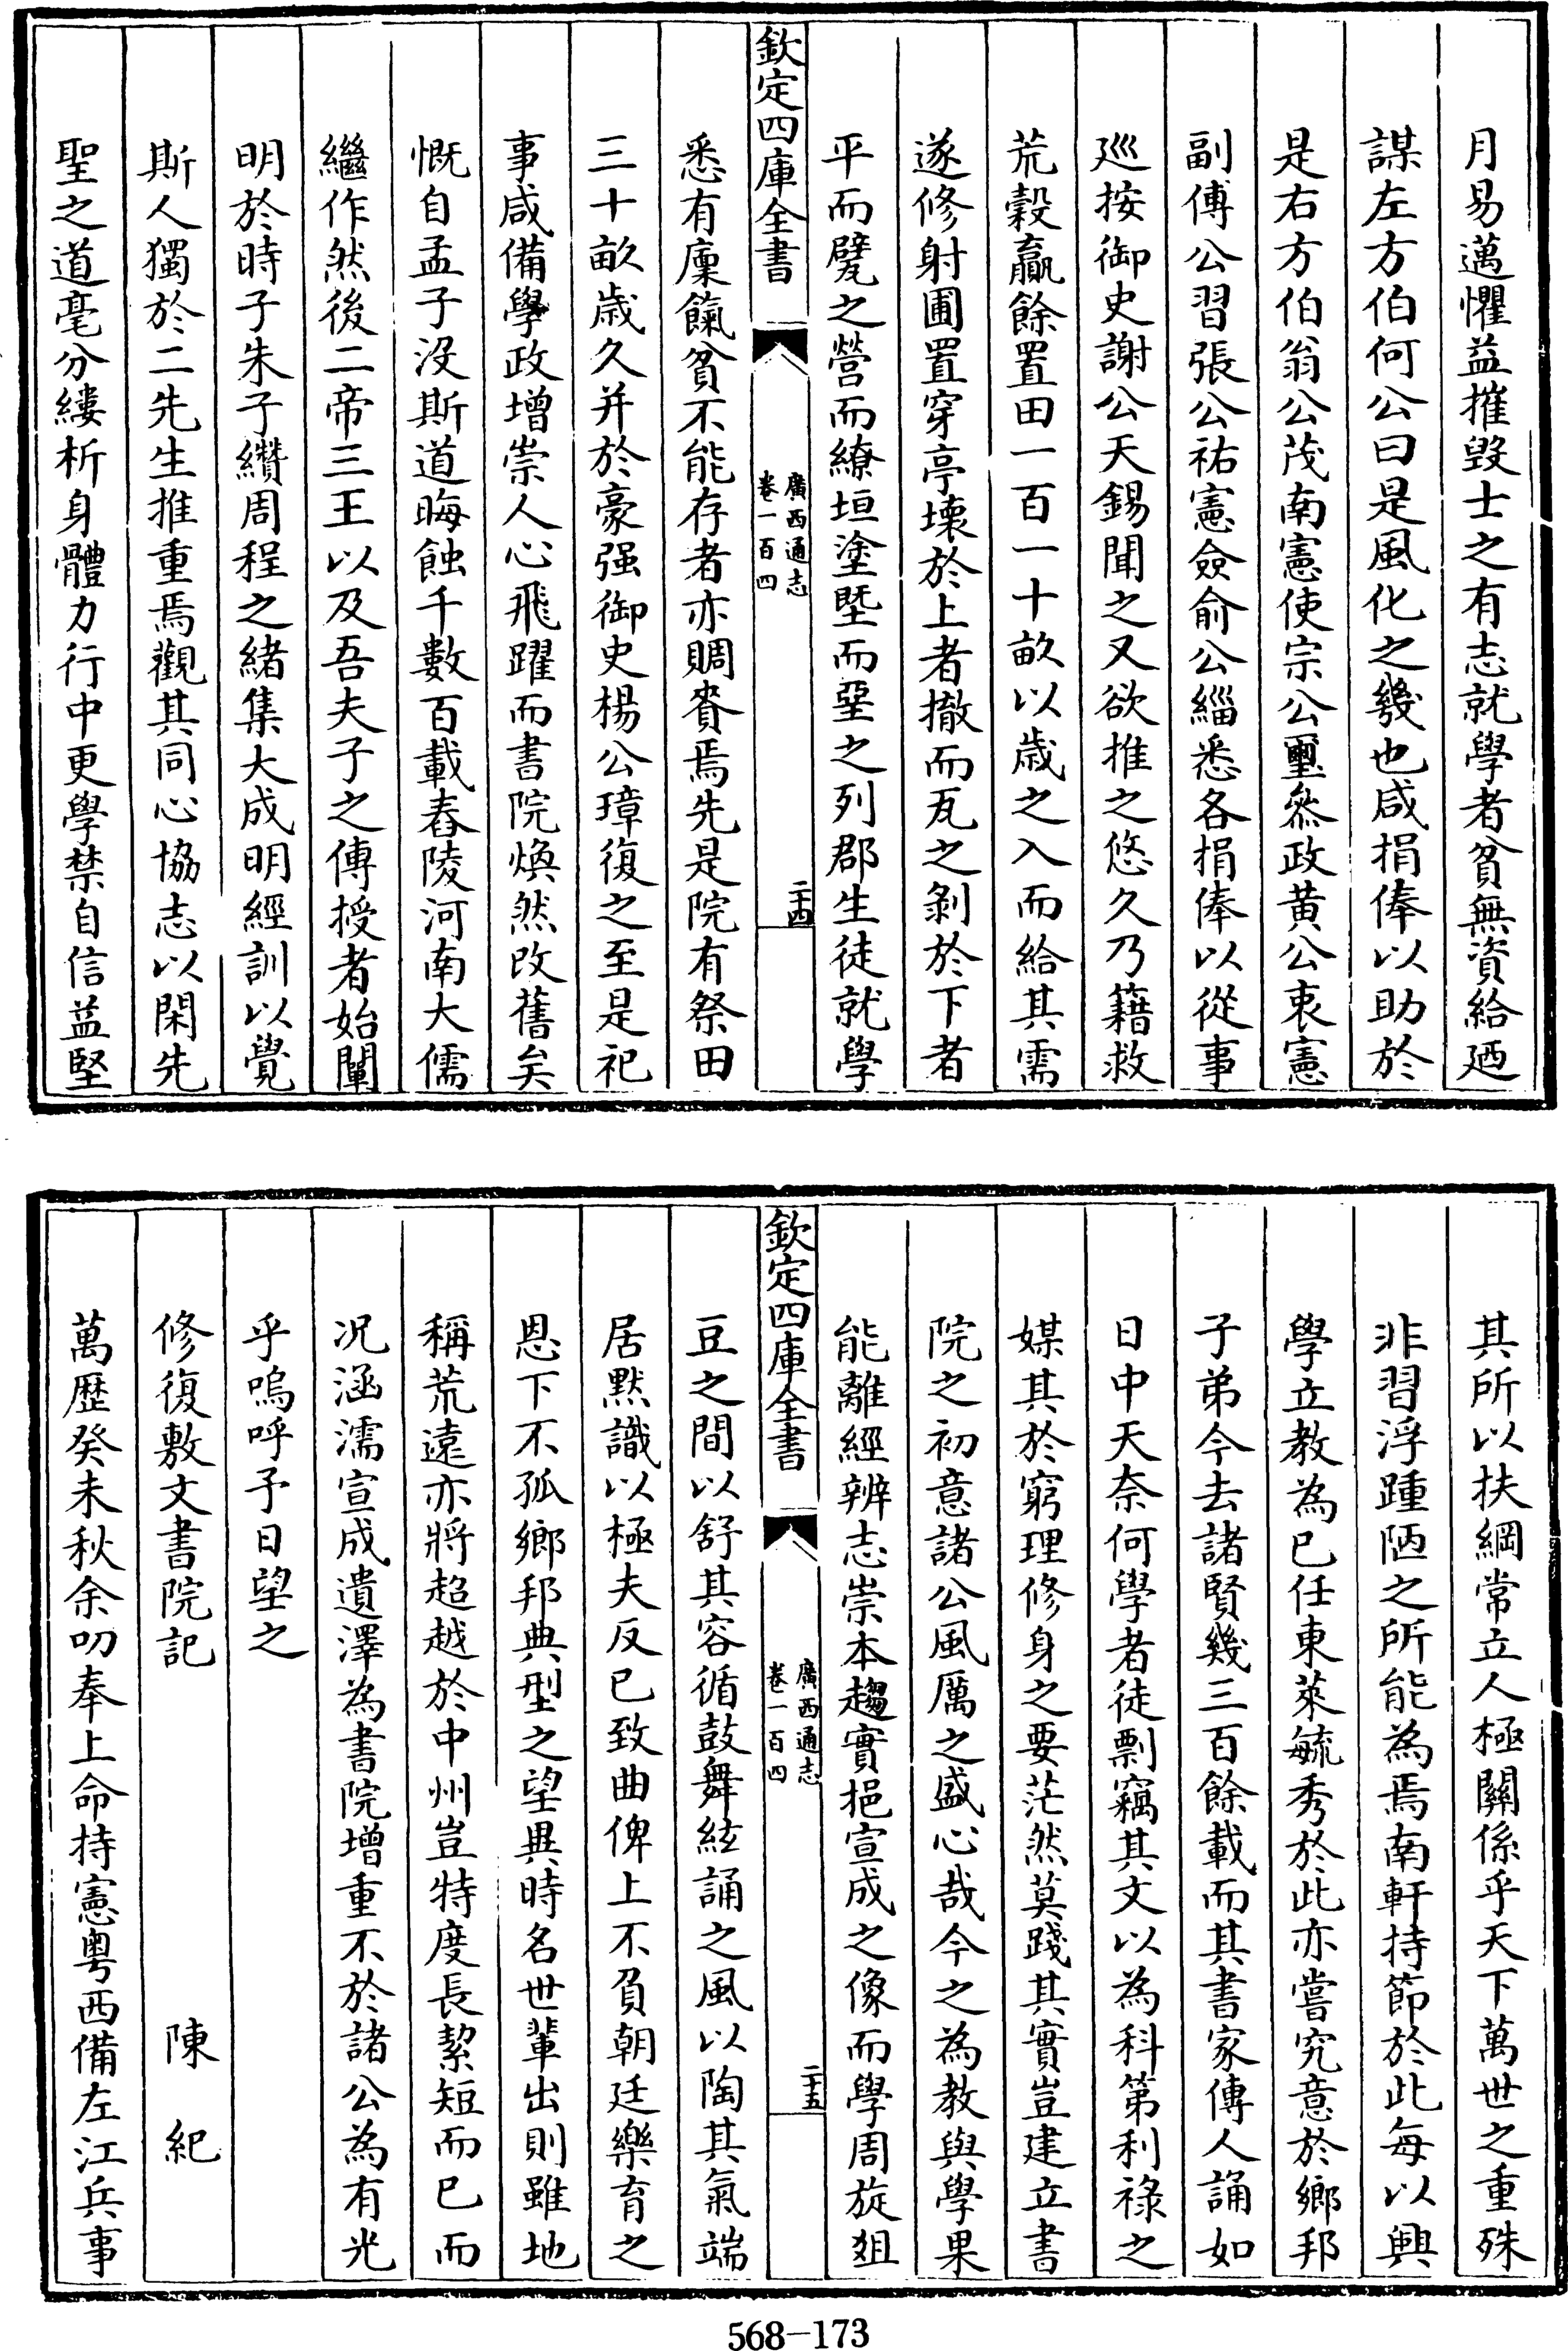 月易邁懼益摧毀士之有志就學者貧無資給廼
謀左方伯何公曰是風化之幾也咸捐俸以助於
是右方伯翁公茂南憲使宗公璽叅政黄公衷憲
副傅公習張公祐憲僉俞公緇悉各捐俸以從事
廵按御史謝公天錫聞之又欲推之悠久乃藉救
荒穀贏餘置田一百一十畝以歳之入而給其需
遂修射圃置穿亭壊於上者撤而瓦之剝於下者
平而甓之營而繚垣塗塈而堊之列郡生徒就學
欽定四庫全書
廣西通志
卷一百四
二十四
悉有廩餼貧不能存者亦賙賚焉先是院有祭田
三十畝歳久并於豪强御史楊公璋復之至是祀
事咸備學政增崇人心飛躍而書院煥然改舊矣
慨自孟子沒斯道晦蝕千數百載舂陵河南大儒
繼作然後二帝三王以及吾夫子之傳授者始闡
明於時子朱子纘周程之緒集大成明經訓以覺
斯人獨於二先生推重焉觀其同心協志以閑先
聖之道毫分縷析身體力行中更學禁自信益堅
其所以扶綱常立人極關係乎天下萬世之重殊
非習浮踵陋之所能為焉南軒持節於此每以興
學立教為已任東萊毓秀於此亦嘗究意於鄉邦
子弟今去諸賢幾三百餘載而其書家傳人誦如
日中天奈何學者徒剽竊其文以為科第利禄之
媒其於窮理修身之要茫然莫踐其實豈建立書
院之初意諸公風厲之盛心哉今之為教與學果
能離經辨志崇本趨實挹宣成之像而學周旋俎
欽定四庫全書
廣西通志
卷一百四
二十五
豆之間以舒其容循鼓舞絃誦之風以陶其氣端
居默識以極夫反已致曲俾上不負朝廷樂育之
恩下不孤鄉邦典型之望異時名世輩出則雖地
稱荒遠亦將超越於中州豈特度長絜短而已而
况涵濡宣成遺澤為書院增重不於諸公為有光
乎嗚呼予日望之
修復敷文書院記　陳　紀
萬歴癸未秋余叨奉上命持憲粤西備左江兵事
568-173